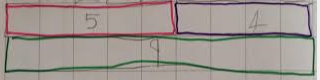 5 4
9